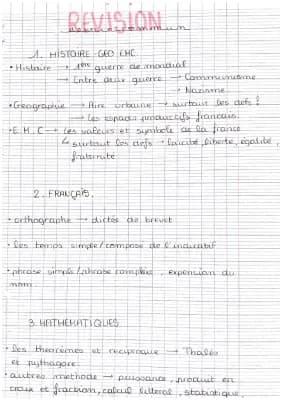 REVISION
commun
1. HISTOIRE-GEO EMC.
• Histoire → 1ère guerre de mondial
→ Entre deux guerre → Communisme
→ Nazisme.
• Geographie → Aire urbaine → surtout les defs !
→ les espaces productifs francais.
• E.M.C → les valeurs et symbole de la france
↳ surtout les defs → laicité, liberte, egalité,
fraternité
2. FRANÇAIS.
• orthographe → dictés de brevet
• les temps simple/compose de l'indicatif
• phrase simple/phrase complexe, expension du
nom.
3. MATHEMATIQUES
• les theorèmes et reciproque → Thales
et pythagore.
• autres methode → puissance, produit en
croix et fraction, calcul litteral, statistique.